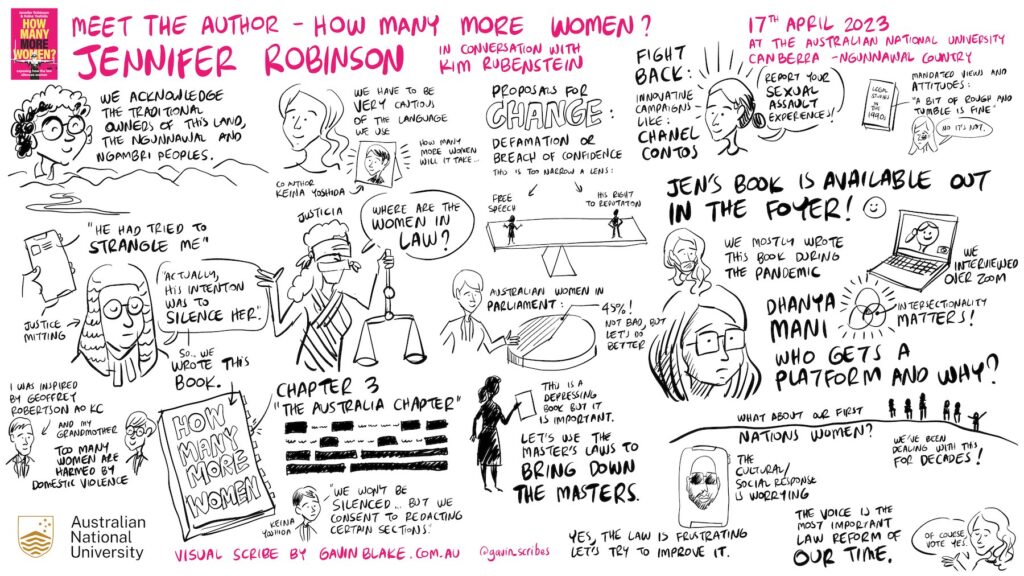 HOW MANY MORE WOMEN?
MEET THE AUTHOR - HOW MANY MORE WOMEN?
JENNIFER ROBINSON
IN CONVERSATION WITH
KIM RUBENSTEIN
17TH APRIL 2023
AT THE AUSTRALIAN NATIONAL UNIVERSITY
CANBERRA - NGUNNAWAL COUNTRY
WE ACKNOWLEDGE
THE TRADITIONAL
OWNERS OF THIS LAND,
THE NGUNNAWAL AND
NGAMBRI PEOPLES.
WE HAVE TO BE
VERY CAUTIOUS
OF THE LANGUAGE
WE USE
HOW MANY
MORE WOMEN
WILL IT TAKE...
CO AUTHOR
KEINA YOSHIDA
PROPOSALS FOR
CHANGE:
DEFAMATION OR
BREACH OF CONFIDENCE
THIS IS TOO NARROW A LENS:
FREE
SPEECH
HIS RIGHT
TO REPUTATION
FIGHT
BACK:
INNOVATIVE
CAMPAIGNS
LIKE:
CHANEL
CONTOS
REPORT YOUR
SEXUAL
ASSAULT
EXPERIENCES!
LEGAL
STUDIES
IN THE
1990s
MANDATED VIEWS AND
ATTITUDES:
"A BIT OF ROUGH AND
TUMBLE IS FINE"
NO IT'S NOT.
"HE HAD TRIED TO
STRANGLE ME"
JUSTICE
MITTING
"ACTUALLY,
HIS INTENTION
WAS TO
SILENCE HER".
SO.. WE
WROTE THIS
BOOK.
JUSTICIA
WHERE ARE THE
WOMEN IN
LAW?
AUSTRALIAN WOMEN IN
PARLIAMENT:
45%!
NOT BAD, BUT
LET'S DO
BETTER
JEN'S BOOK IS AVAILABLE OUT
IN THE FOYER!
WE MOSTLY WROTE
THIS BOOK DURING
THE PANDEMIC
WE
INTERVIEWED
OVER ZOOM
DHANYA
MANI
INTERSECTIONALITY
MATTERS!
WHO GETS A
PLATFORM AND WHY?
I WAS INSPIRED
BY GEOFFREY
ROBERTSON AO KC
AND MY
GRANDMOTHER
TOO MANY
WOMEN ARE
HARMED BY
DOMESTIC VIOLENCE
HOW
MANY
MORE
WOMEN
CHAPTER 3
"THE AUSTRALIA CHAPTER"
KEINA
YOSHIDA
"WE WON'T BE
SILENCED... BUT WE
CONSENT TO REDACTING
CERTAIN SECTIONS."
THIS IS A
DEPRESSING
BOOK BUT IT
IS IMPORTANT.
LET'S USE THE
MASTER'S LAWS TO
BRING DOWN
THE MASTERS.
WHAT ABOUT OUR FIRST
NATIONS WOMEN?
WE'VE BEEN
DEALING WITH THIS
FOR DECADES!
THE
CULTURAL/
SOCIAL RESPONSE
IS WORRYING
YES, THE LAW IS FRUSTRATING
LET'S TRY TO IMPROVE IT.
THE VOICE IS THE
MOST IMPORTANT
LAW REFORM OF
OUR TIME.
OF COURSE,
VOTE YES.
Australian
National
University
VISUAL SCRIBE BY GAVIN BLAKE.COM.AU
@gavin_scribes